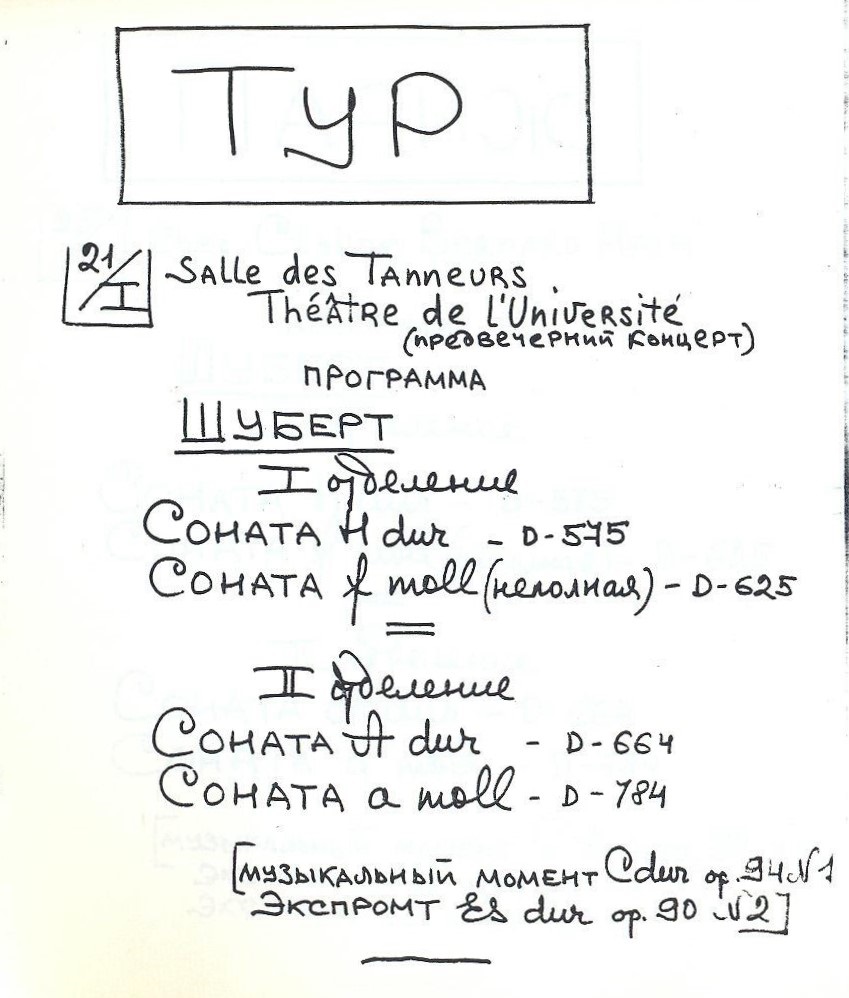 ТУР
21/I Salle des Tanneurs.
Théâtre de l'Université
(предвечерний концерт)
ПРОГРАММА
ШУБЕРТ
I отделение
СОНАТА H dur - D-575
СОНАТА f moll (неполная) - D-625
II отделение
СОНАТА A dur - D-664
СОНАТА a moll - D-784
[МУЗЫКАЛЬНЫЙ МОМЕНТ C dur op. 94 №1
ЭКСПРОМТ Es dur op. 90 №2]